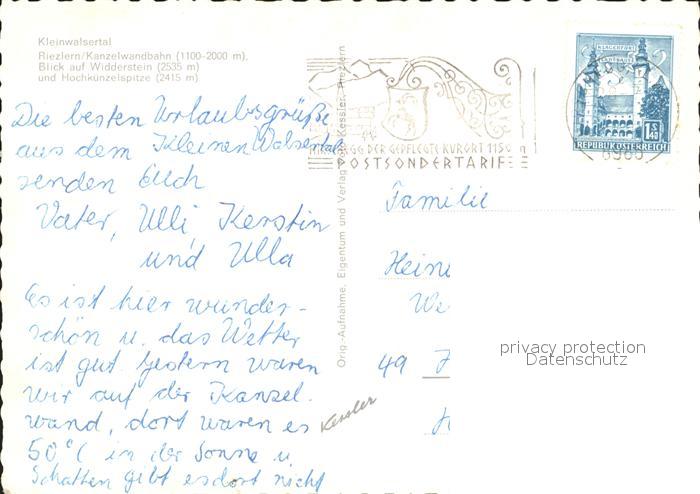 Kleinwalsertal
Riezlern/Kanzelwandbahn (1100-2000 m),
Blick auf Widderstein (2535 m)
und Hochkünzelspitze (2415 m)
Die besten Urlaubsgrüße
aus dem Kleinen Walsertal
senden Euch
Vater, Ulli, Kerstin
und Ulla
Es ist hier wunder-
schön u. das Wetter
ist gut. Gestern waren
wir auf der Kanzel.
wand, dort waren es
50°C in der Sonne u.
Schatten gibt es dort nicht
Orig.-Aufnahme, Eigentum und Verlag Kessler, Riezlern
Kessler
EGG DER GEPFLEGTE KURORT 1150 m
POSTSONDERTARIF
KLAGENFURT
LANDHAUS
1S
REPUBLIK ÖSTERREICH
Familie
Heine
We
49
privacy protection
Datenschutz